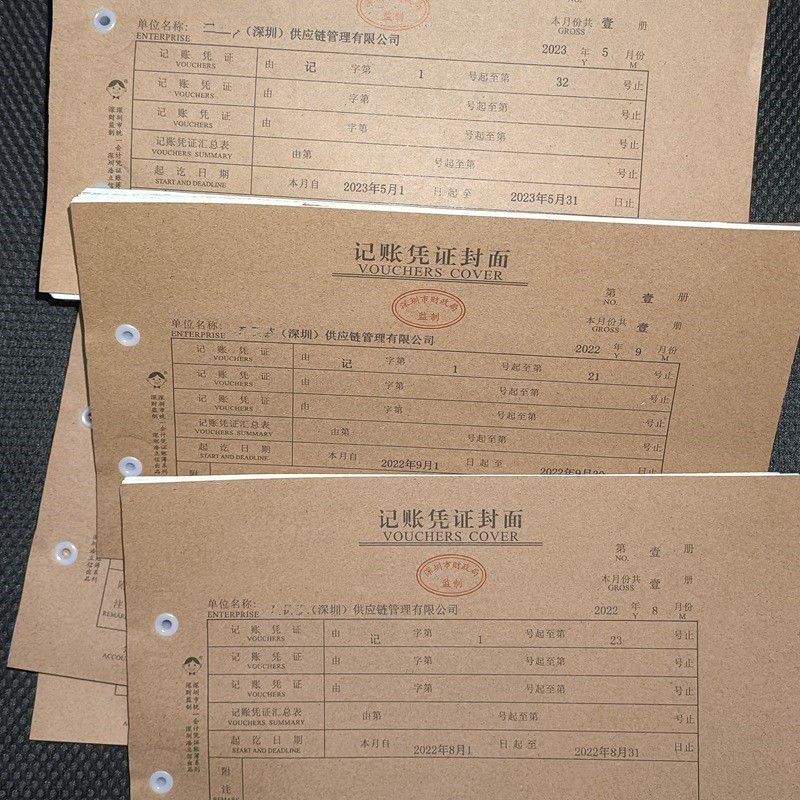 监制
本月份共 壹 册
GROSS
单位名称: (深圳)供应链管理有限公司
ENTERPRISE
2023 年 5 月份
Y M
记 账 凭 证 由 记 字第 1 号起至第 32 号止
VOUCHERS
记 账 凭 证 由 字第 号起至第 号止
VOUCHERS
记 账 凭 证 由 字第 号起至第 号止
VOUCHERS
记账凭证汇总表 由第 号起至第 号止
VOUCHERS SUMMARY
起 讫 日 期 本月自 2023年5月1 日起至 2023年5月31 日止
START AND DEADLINE
深圳市统一会计凭证账簿
深财监制
记账凭证封面
VOUCHERS COVER
深圳市财政局
监制
第 壹 册
NO.
本月份共 壹 册
GROSS
单位名称: (深圳)供应链管理有限公司
ENTERPRISE
2022 年 9 月份
Y M
记 账 凭 证 由 记 字第 1 号起至第 21 号止
VOUCHERS
记 账 凭 证 由 字第 号起至第 号止
VOUCHERS
记 账 凭 证 由 字第 号起至第 号止
VOUCHERS
记账凭证汇总表 由第 号起至第 号止
VOUCHERS SUMMARY
起 讫 日 期 本月自 2022年9月1 日起至 2022年9月30 日止
START AND DEADLINE
附
深圳市统一会计凭证账簿系列
深财监制
记账凭证封面
VOUCHERS COVER
深圳市财政局
监制
第 壹 册
NO.
本月份共 壹 册
GROSS
单位名称: (深圳)供应链管理有限公司
ENTERPRISE
2022 年 8 月份
Y M
记 账 凭 证 由 记 字第 1 号起至第 23 号止
VOUCHERS
记 账 凭 证 由 字第 号起至第 号止
VOUCHERS
记 账 凭 证 由 字第 号起至第 号止
VOUCHERS
记账凭证汇总表 由第 号起至第 号止
VOUCHERS SUMMARY
起 讫 日 期 本月自 2022年8月1 日起至 2022年8月31 日止
START AND DEADLINE
附
注
REMARK
深圳市统一会计凭证账簿系列
深财监制